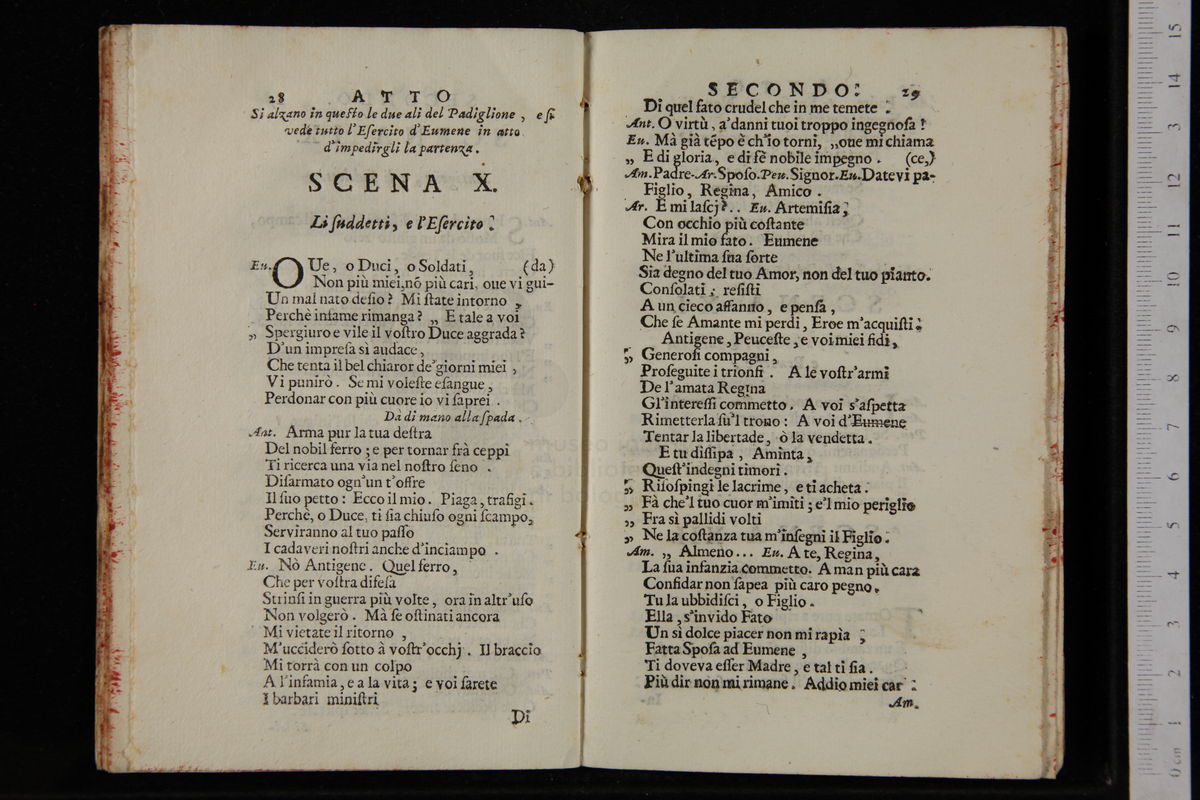 28 ATTO
Si alzano in queſto le due ali del Padiglione, e ſi
vede tutto l'Eſercito d'Eumene in atto
d'impedirgli la partenza.
SCENA X.
Li ſuddetti, e l'Eſercito.
Eu. OUe, o Duci, o Soldati, (da)
Non più miei, nō più cari, oue vi gui-
Un mal nato deſio? Mi ſtate intorno,
Perchè infame rimanga? „ E tale a voi
„ Spergiuro e vile il voſtro Duce aggrada?
D'un impreſa sì audace,
Che tenta il bel chiaror de'giorni miei,
Vi punirò. Se mi voleſte eſangue,
Perdonar con più cuore io vi ſaprei.
Dà di mano alla ſpada.
Ant. Arma pur la tua deſtra
Del nobil ferro; e per tornar frà ceppi
Ti ricerca una via nel noſtro ſeno.
Diſarmato ogn'un t'offre
Il ſuo petto: Ecco il mio. Piaga, trafigi.
Perchè, o Duce, ti ſia chiuſo ogni ſcampo,
Serviranno al tuo paſſo
I cadaveri noſtri anche d'inciampo.
Eu. Nò Antigene. Quel ferro,
Che per voſtra difeſa
Strinſi in guerra più volte, ora in altr'uſo
Non volgerò. Mà ſe oſtinati ancora
Mi vietate il ritorno,
M'ucciderò ſotto à voſtr'occhj. Il braccio
Mi torrà con un colpo
A l'infamia, e a la vita; e voi ſarete
I barbari miniſtri
Di
SECONDO. 29
Di quel fato crudel che in me temete.
Ant. O virtù, a'danni tuoi troppo ingegnoſa!
Eu. Mà già tēpo è ch'io torni, „oue mi chiama
„ E di gloria, e di fè nobile impegno. (ce,)
Am. Padre. Ar. Spoſo. Peu. Signor. Eu. Datevi pa-
Figlio, Regina, Amico.
Ar. E mi laſcj?.. Eu. Artemiſia,
Con occhio più coſtante
Mira il mio fato. Eumene
Ne l'ultima ſua ſorte
Sia degno del tuo Amor, non del tuo pianto.
Conſolati; reſiſti
A un cieco affanno, e penſa,
Che ſe Amante mi perdi, Eroe m'acquiſti.
Antigene, Peuceſte, e voi miei fidi,
„ Generoſi compagni,
Proſeguite i trionfi. A le voſtr'armi
De l'amata Regina
Gl'intereſſi commetto. A voi s'aſpetta
Rimetterla ſu'l trono: A voi d'Eumene
Tentar la libertade, ò la vendetta.
E tu diſſipa, Aminta,
Queſt'indegni timori.
„ Riſoſpingi le lacrime, e ti acheta.
„ Fà che'l tuo cuor m'imiti; e'l mio periglio
„ Fra sì pallidi volti
„ Ne la coſtanza tua m'inſegni il Figlio.
Am. „ Almeno... Eu. A te, Regina,
La ſua infanzia commetto. A man più cara
Confidar non ſapea più caro pegno.
Tu la ubbidiſci, o Figlio.
Ella, s'invido Fato
Un sì dolce piacer non mi rapìa;
Fatta Spoſa ad Eumene,
Ti doveva eſſer Madre, e tal ti ſia.
Più dir non mi rimane. Addio miei car
Am.